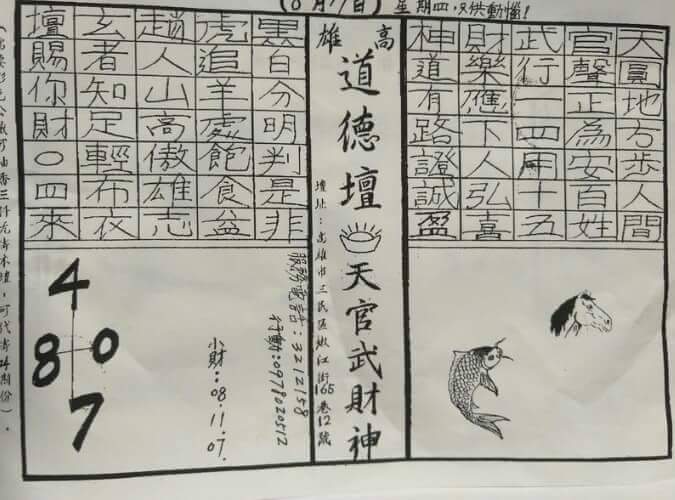 星期四,只供動惱!
天圓地方步人間
官聲正為安百姓
武行一四用十五
財樂應下人弘喜
神道有路證誠盈
高雄
道德壇 天官武財神
壇址:高雄市三民區嫩江街165巷12號
黑白分明判是非
虎追羊處飽食益
趙人山高傲雄志
玄者知足輕布衣
壇賜你財〇四來
服務電話:3212158
行動:0978020512
小財:08.11.07.
4
8 0
7